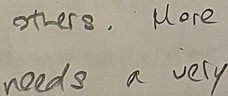 others. More
needs a very